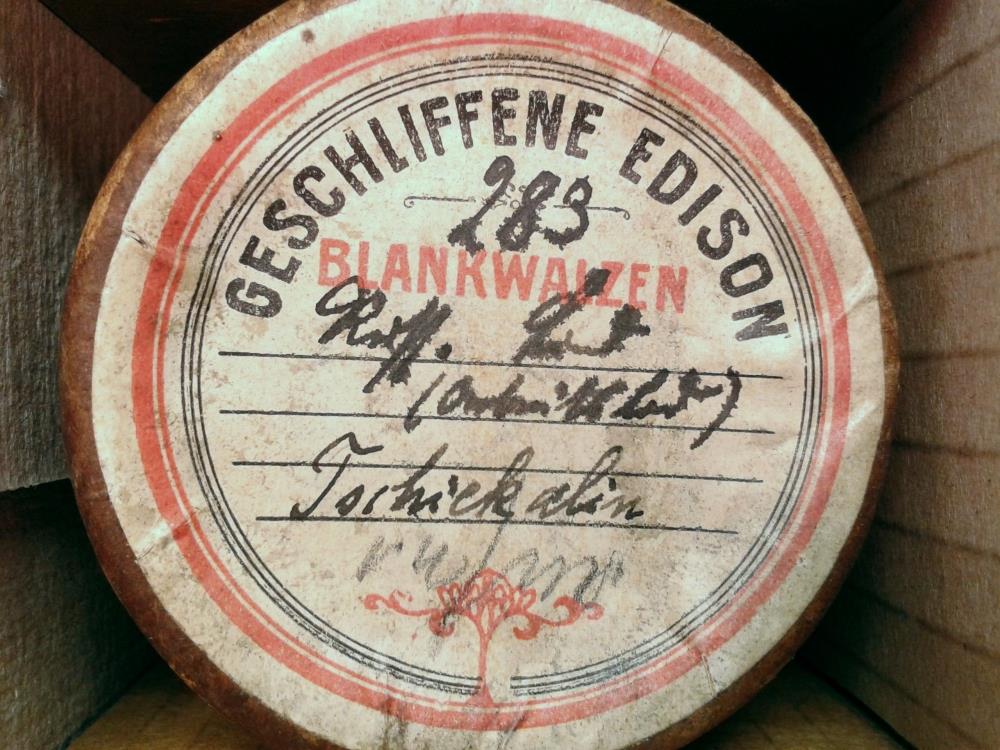 GESCHLIFFENE EDISON
283
BLANKWALZEN
Russ. Lied
Tschickalin